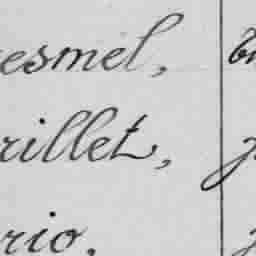 esmel,
rillet,
rio.